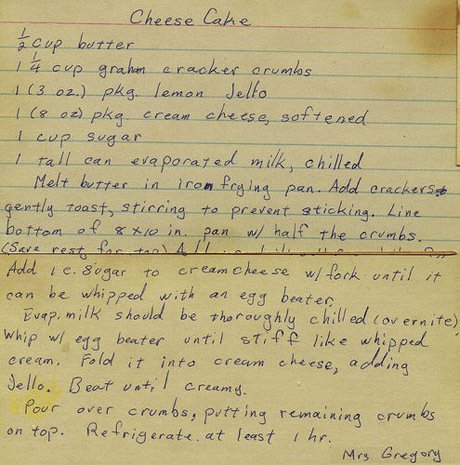 Cheese Cake
1/2 cup butter
1 1/4 cup graham cracker crumbs
1 (3 oz.) pkg. lemon Jello
1 (8 oz) pkg. cream cheese, softened
1 cup sugar
1 tall can evaporated milk, chilled
Melt butter in iron frying pan. Add crackers &
gently toast, stirring to prevent sticking. Line
bottom of 8x10 in. pan w/ half the crumbs.
(Save rest for top)
Add 1 c. sugar to cream cheese w/ fork until it
can be whipped with an egg beater.
Evap. milk should be thoroughly chilled (overnite).
Whip w/ egg beater until stiff like whipped
cream. Fold it into cream cheese, adding
Jello. Beat until creamy.
Pour over crumbs, putting remaining crumbs
on top. Refrigerate at least 1 hr.
Mrs Gregory